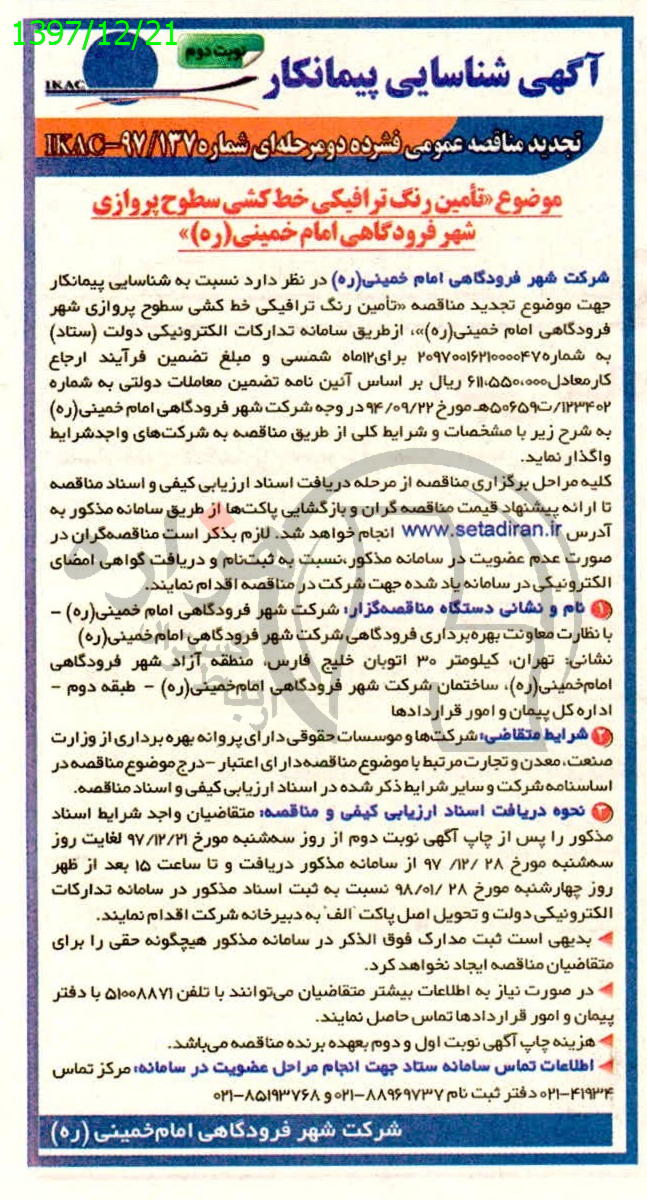 1397/12/21
نوبت دوم
IKAC
آگهی شناسایی پیمانکار
تجدید مناقصه عمومی فشرده دومرحله‌ای شماره IKAC-۹۷/۱۳۷
موضوع «تأمین رنگ ترافیکی خط کشی سطوح پروازی
شهر فرودگاهی امام خمینی(ره)»
شرکت شهر فرودگاهی امام خمینی(ره) در نظر دارد نسبت به شناسایی پیمانکار
جهت موضوع تجدید مناقصه «تأمین رنگ ترافیکی خط کشی سطوح پروازی شهر
فرودگاهی امام خمینی(ره)»، ازطریق سامانه تدارکات الکترونیکی دولت (ستاد)
به شماره ۲۰۹۷۰۰۱۶۲۱۰۰۰۰۴۷ برای۱۲ماه شمسی و مبلغ تضمین فرآیند ارجاع
کارمعادل۶۱۱،۵۵۰،۰۰۰ ریال بر اساس آئین نامه تضمین معاملات دولتی به شماره
۱۲۳۴۰۲/ت۵۰۶۵۹هـ مورخ ۹۴/۰۹/۲۲ در وجه شرکت شهر فرودگاهی امام خمینی(ره)
به شرح زیر با مشخصات و شرایط کلی از طریق مناقصه به شرکت‌های واجدشرایط
واگذار نماید.
کلیه مراحل برگزاری مناقصه از مرحله دریافت اسناد ارزیابی کیفی و اسناد مناقصه
تا ارائه پیشنهاد قیمت مناقصه گران و بازگشایی پاکت‌ها از طریق سامانه مذکور به
آدرس www.setadiran.ir انجام خواهد شد. لازم بذکر است مناقصه‌گران در
صورت عدم عضویت در سامانه مذکور،نسبت به ثبت‌نام و دریافت گواهی امضای
الکترونیکی در سامانه یاد شده جهت شرکت در مناقصه اقدام نمایند.
۱ نام و نشانی دستگاه مناقصه‌گزار: شرکت شهر فرودگاهی امام خمینی(ره) –
با نظارت معاونت بهره‌برداری فرودگاهی شرکت شهر فرودگاهی امام خمینی(ره)
نشانی: تهران، کیلومتر ۳۰ اتوبان خلیج فارس، منطقه آزاد شهر فرودگاهی
امام‌خمینی(ره)، ساختمان شرکت شهر فرودگاهی امام‌خمینی(ره) – طبقه دوم –
اداره کل پیمان و امور قراردادها
۲ شرایط متقاضی: شرکت‌ها و موسسات حقوقی دارای پروانه بهره برداری از وزارت
صنعت، معدن و تجارت مرتبط با موضوع مناقصه دارای اعتبار –درج موضوع مناقصه در
اساسنامه شرکت و سایر شرایط ذکر شده در اسناد ارزیابی کیفی و اسناد مناقصه.
۳ نحوه دریافت اسناد ارزیابی کیفی و مناقصه: متقاضیان واجد شرایط اسناد
مذکور را پس از چاپ آگهی نوبت دوم از روز سه‌شنبه مورخ ۹۷/۱۲/۲۱ لغایت روز
سه‌شنبه مورخ ۲۸ /۱۲/ ۹۷ از سامانه مذکور دریافت و تا ساعت ۱۵ بعد از ظهر
روز چهارشنبه مورخ ۲۸ /۹۸/۰۱ نسبت به ثبت اسناد مذکور در سامانه تدارکات
الکترونیکی دولت و تحویل اصل پاکت "الف" به دبیرخانه شرکت اقدام نمایند.
بدیهی است ثبت مدارک فوق الذکر در سامانه مذکور هیچگونه حقی را برای
متقاضیان مناقصه ایجاد نخواهد کرد.
در صورت نیاز به اطلاعات بیشتر متقاضیان می‌توانند با تلفن ۵۱۰۰۸۸۷۱ با دفتر
پیمان و امور قراردادها تماس حاصل نمایند.
هزینه چاپ آگهی نوبت اول و دوم بعهده برنده مناقصه می‌باشد.
اطلاعات تماس سامانه ستاد جهت انجام مراحل عضویت در سامانه: مرکز تماس
۰۲۱-۴۱۹۳۴ دفتر ثبت نام ۰۲۱-۸۸۹۶۹۷۳۷ و ۰۲۱-۸۵۱۹۳۷۶۸
شرکت شهر فرودگاهی امام‌خمینی (ره)